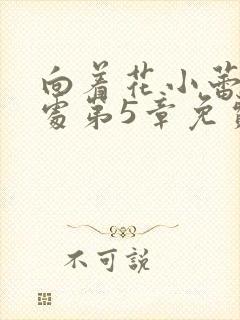 向着花小蕾
处第5章免费
不可説